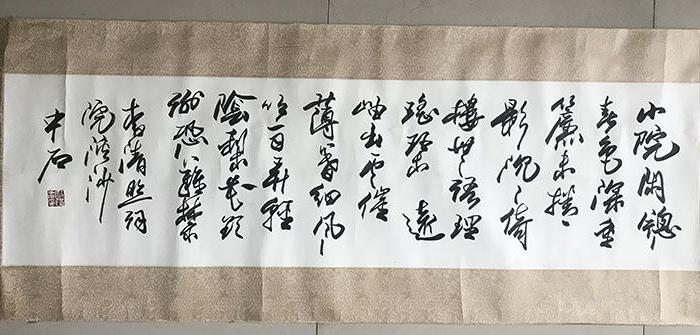 小院閑窗
春色深重
簾未捲
影沉々倚
樓無語理
瑤琴遠
岫出雲催
薄暮細風
吹雨弄輕
陰梨花欲
謝恐難禁
李清照詞
浣溪沙
中石